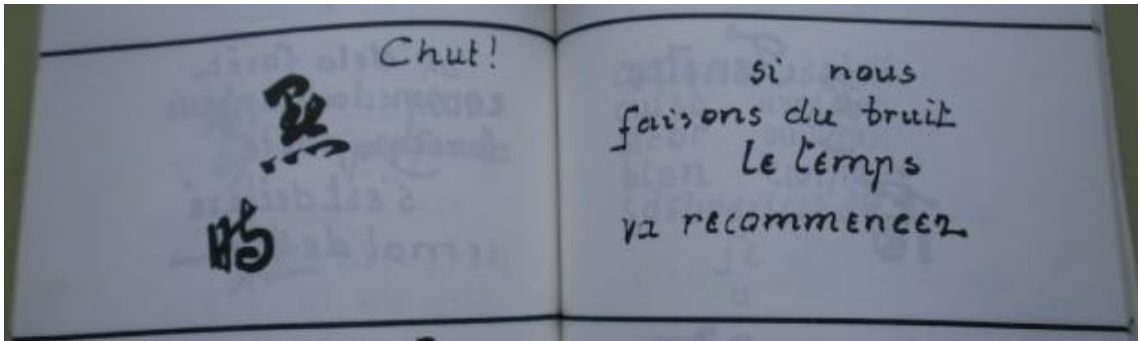 Chut!
si nous
faisons du bruit
le temps
va recommencer